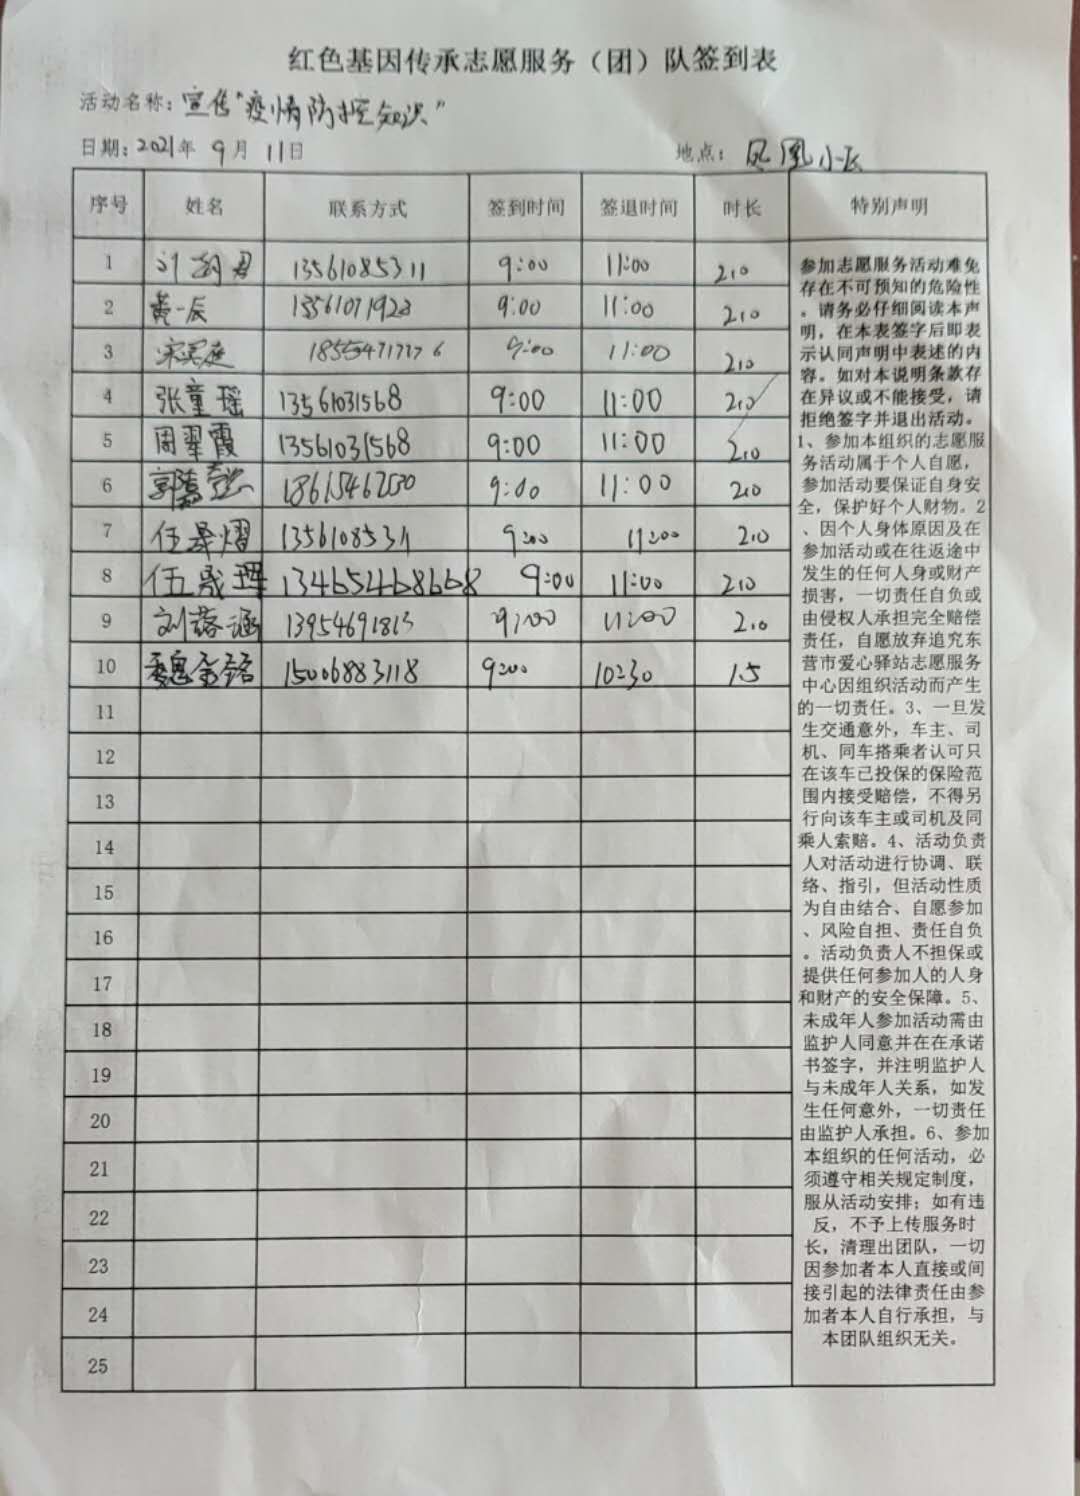 红色基因传承志愿服务（团）队签到表
活动名称：宣传“疫情防控知识”
日期：2021年 9月 11日 地点： 凤凰小区
序号 姓名 联系方式 签到时间 签退时间 时长 特别声明
1 13561085311 9:00 11:00 2.0
2 黄一辰 13561071923 9:00 11:00 2.0
3 9:00 11:00 2.0
4 张童瑶 13561031568 9:00 11:00 2.0
5 周翠霞 13561031568 9:00 11:00 2.0
6 9:00 11:00 2.0
7 任晟熠 13561085311 9:00 11:00 2.0
8 伍晟珲 13465468668 9:00 11:00 2.0
9 13954691813 9:00 11:00 2.0
10 15006883118 9:00 10:30 1.5
11
12
13
14
15
16
17
18
19
20
21
22
23
24
25
参加志愿服务活动难免
存在不可预知的危险性
。请务必仔细阅读本声
明，在本表签字后即表
示认同声明中表述的内
容。如对本说明条款存
在异议或不能接受，请
拒绝签字并退出活动。
1、参加本组织的志愿服
务活动属于个人自愿，
参加活动要保证自身安
全，保护好个人财物。2
、因个人身体原因及在
参加活动或在往返途中
发生的任何人身或财产
损害，一切责任自负或
由侵权人承担完全赔偿
责任，自愿放弃追究东
营市爱心驿站志愿服务
中心因组织活动而产生
的一切责任。3、一旦发
生交通意外，车主、司
机、同车搭乘者认可只
在该车已投保的保险范
围内接受赔偿，不得另
行向该车主或司机及同
乘人索赔。4、活动负责
人对活动进行协调、联
络、指引，但活动性质
为自由结合、自愿参加
、风险自担、责任自负
。活动负责人不担保或
提供任何参加人的人身
和财产的安全保障。5、
未成年人参加活动需由
监护人同意并在在承诺
书签字，并注明监护人
与未成年人关系，如发
生任何意外，一切责任
由监护人承担。6、参加
本组织的任何活动，必
须遵守相关规定制度，
服从活动安排；如有违
反，不予上传服务时
长，清理出团队，一切
因参加者本人直接或间
接引起的法律责任由参
加者本人自行承担，与
本团队组织无关。